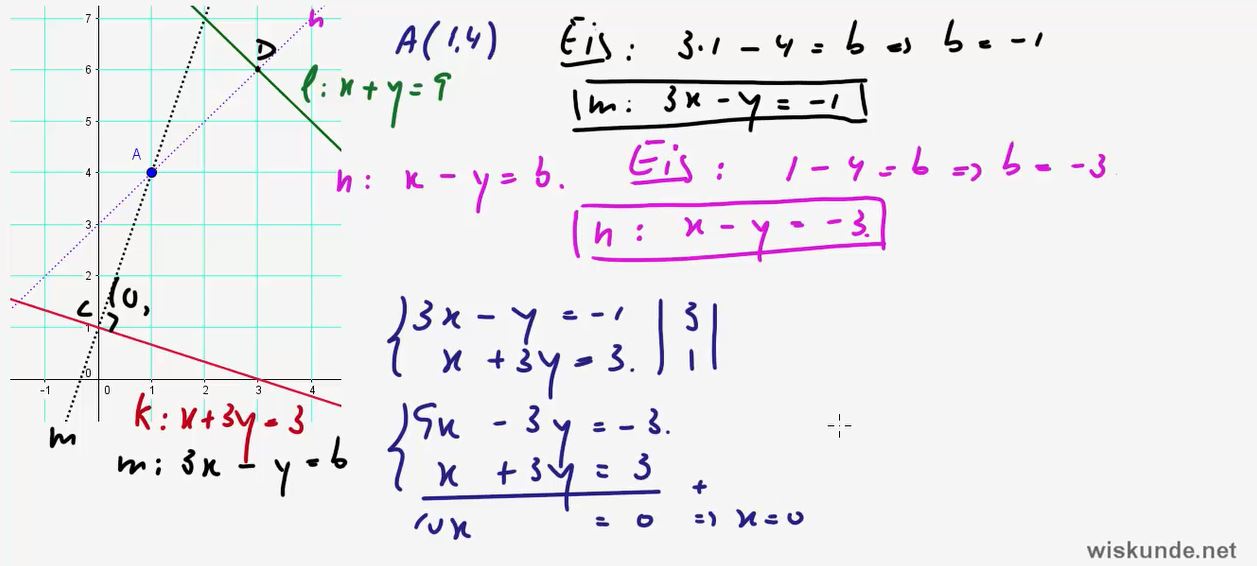 A(1,4) Eis: 3·1 - 4 = b => b = -1
m: 3x - y = -1
l: x + y = 9
n: x - y = b. Eis: 1 - 4 = b => b = -3
n: x - y = -3.
3x - y = -1 | 3 |
x + 3y = 3. | 1 |
9x - 3y = -3.
x + 3y = 3
+
10x = 0 => x = 0
n
D
A
C (0,
7
6
5
4
3
2
1
0
-1 0 1 2 3 4
k: x + 3y = 3
m
m: 3x - y = b
wiskunde.net